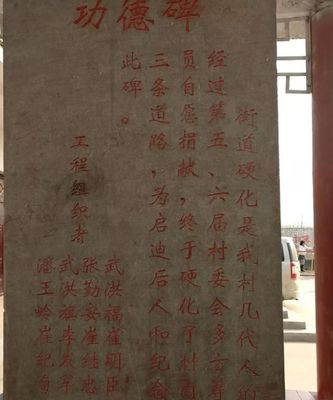 功德碑
街道硬化是我村几代人的
经过第五、六届村委会多方筹
员自愿捐献,终于硬化了村
三条道路,为启迪后人和纪念
此碑。
工程组织者
武洪福崔明臣
张勤安崔结忠
武洪祖李友军
潘玉岭崔纪